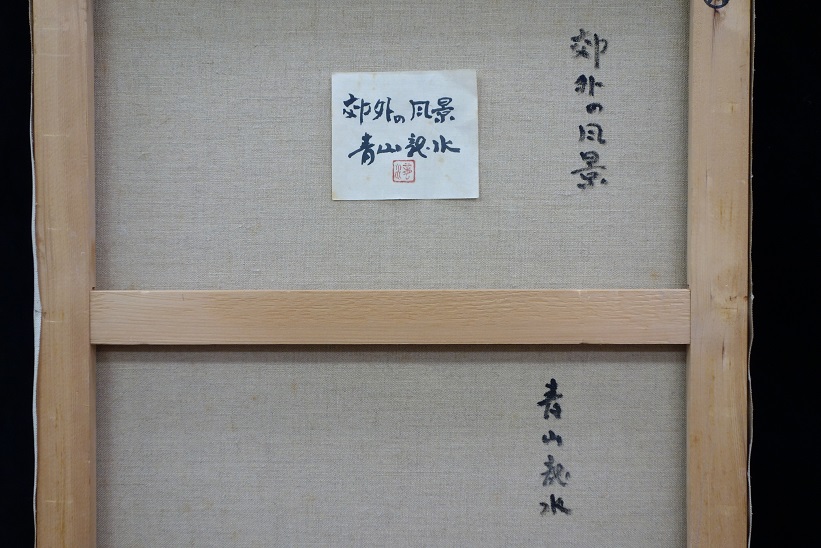 郊外の風景
青山龍水
郊外の風景
青山龍水